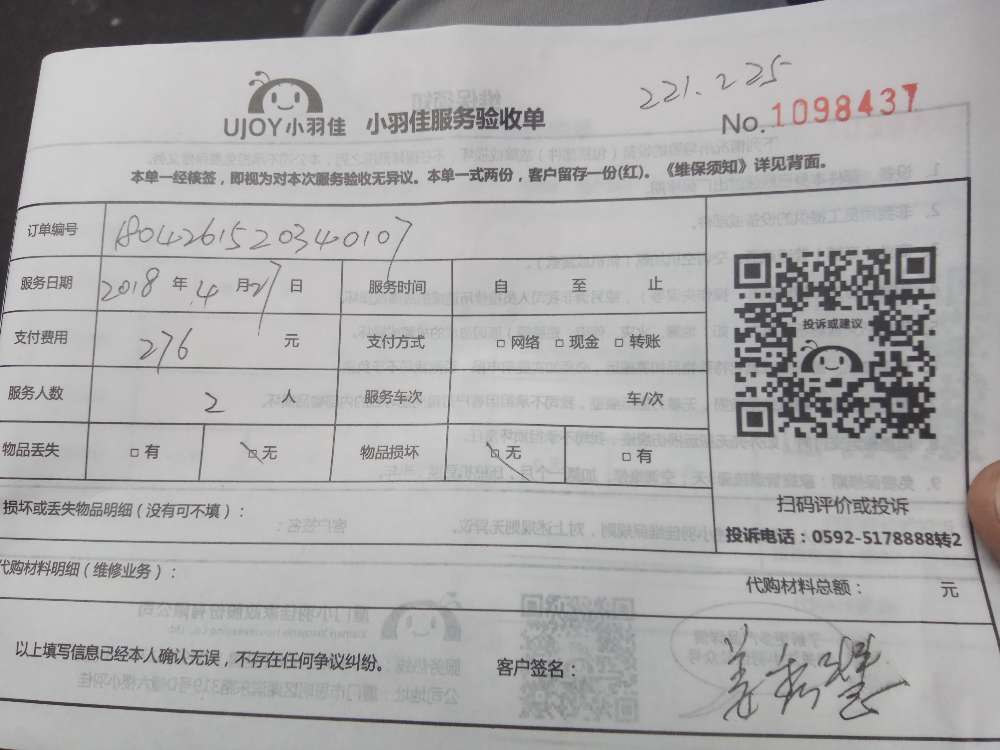 221.225
UJOY小羽佳 小羽佳服务验收单
No.1098437
本单一经核签，即视为对本次服务验收无异议。本单一式两份，客户留存一份(红)。《维保须知》详见背面。
订单编号 1804261520340107
服务日期 2018年4月27日 服务时间 自 至 止
支付费用 276 元 支付方式 □网络 □现金 □转账
投诉或建议
服务人数 2 人 服务车次 车/次
物品丢失 □有 □无 物品损坏 □无 □有
损坏或丢失物品明细（没有可不填）：
扫码评价或投诉
投诉电话：0592-5178888转2
代购材料明细（维修业务）：
代购材料总额： 元
以上填写信息已经本人确认无误，不存在任何争议纠纷。
客户签名：